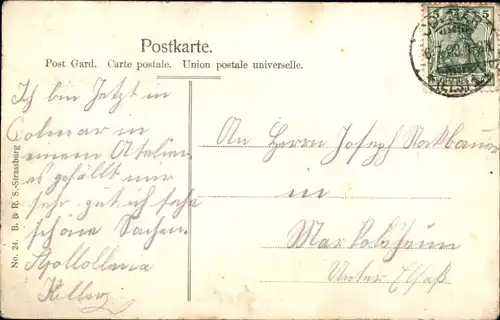 Postkarte.
Post Card. Carte postale. Union postale universelle.
5 5
Ich bin Jetzt in
Colmar in
einem Atelier
es gefällt mir
sehr gut ich sehe
schöne Sachen
An Herrn Joseph Stockbauer
in
Markolsheim
Unter Elsaß
No. 24. B. & R. S.-Strassburg